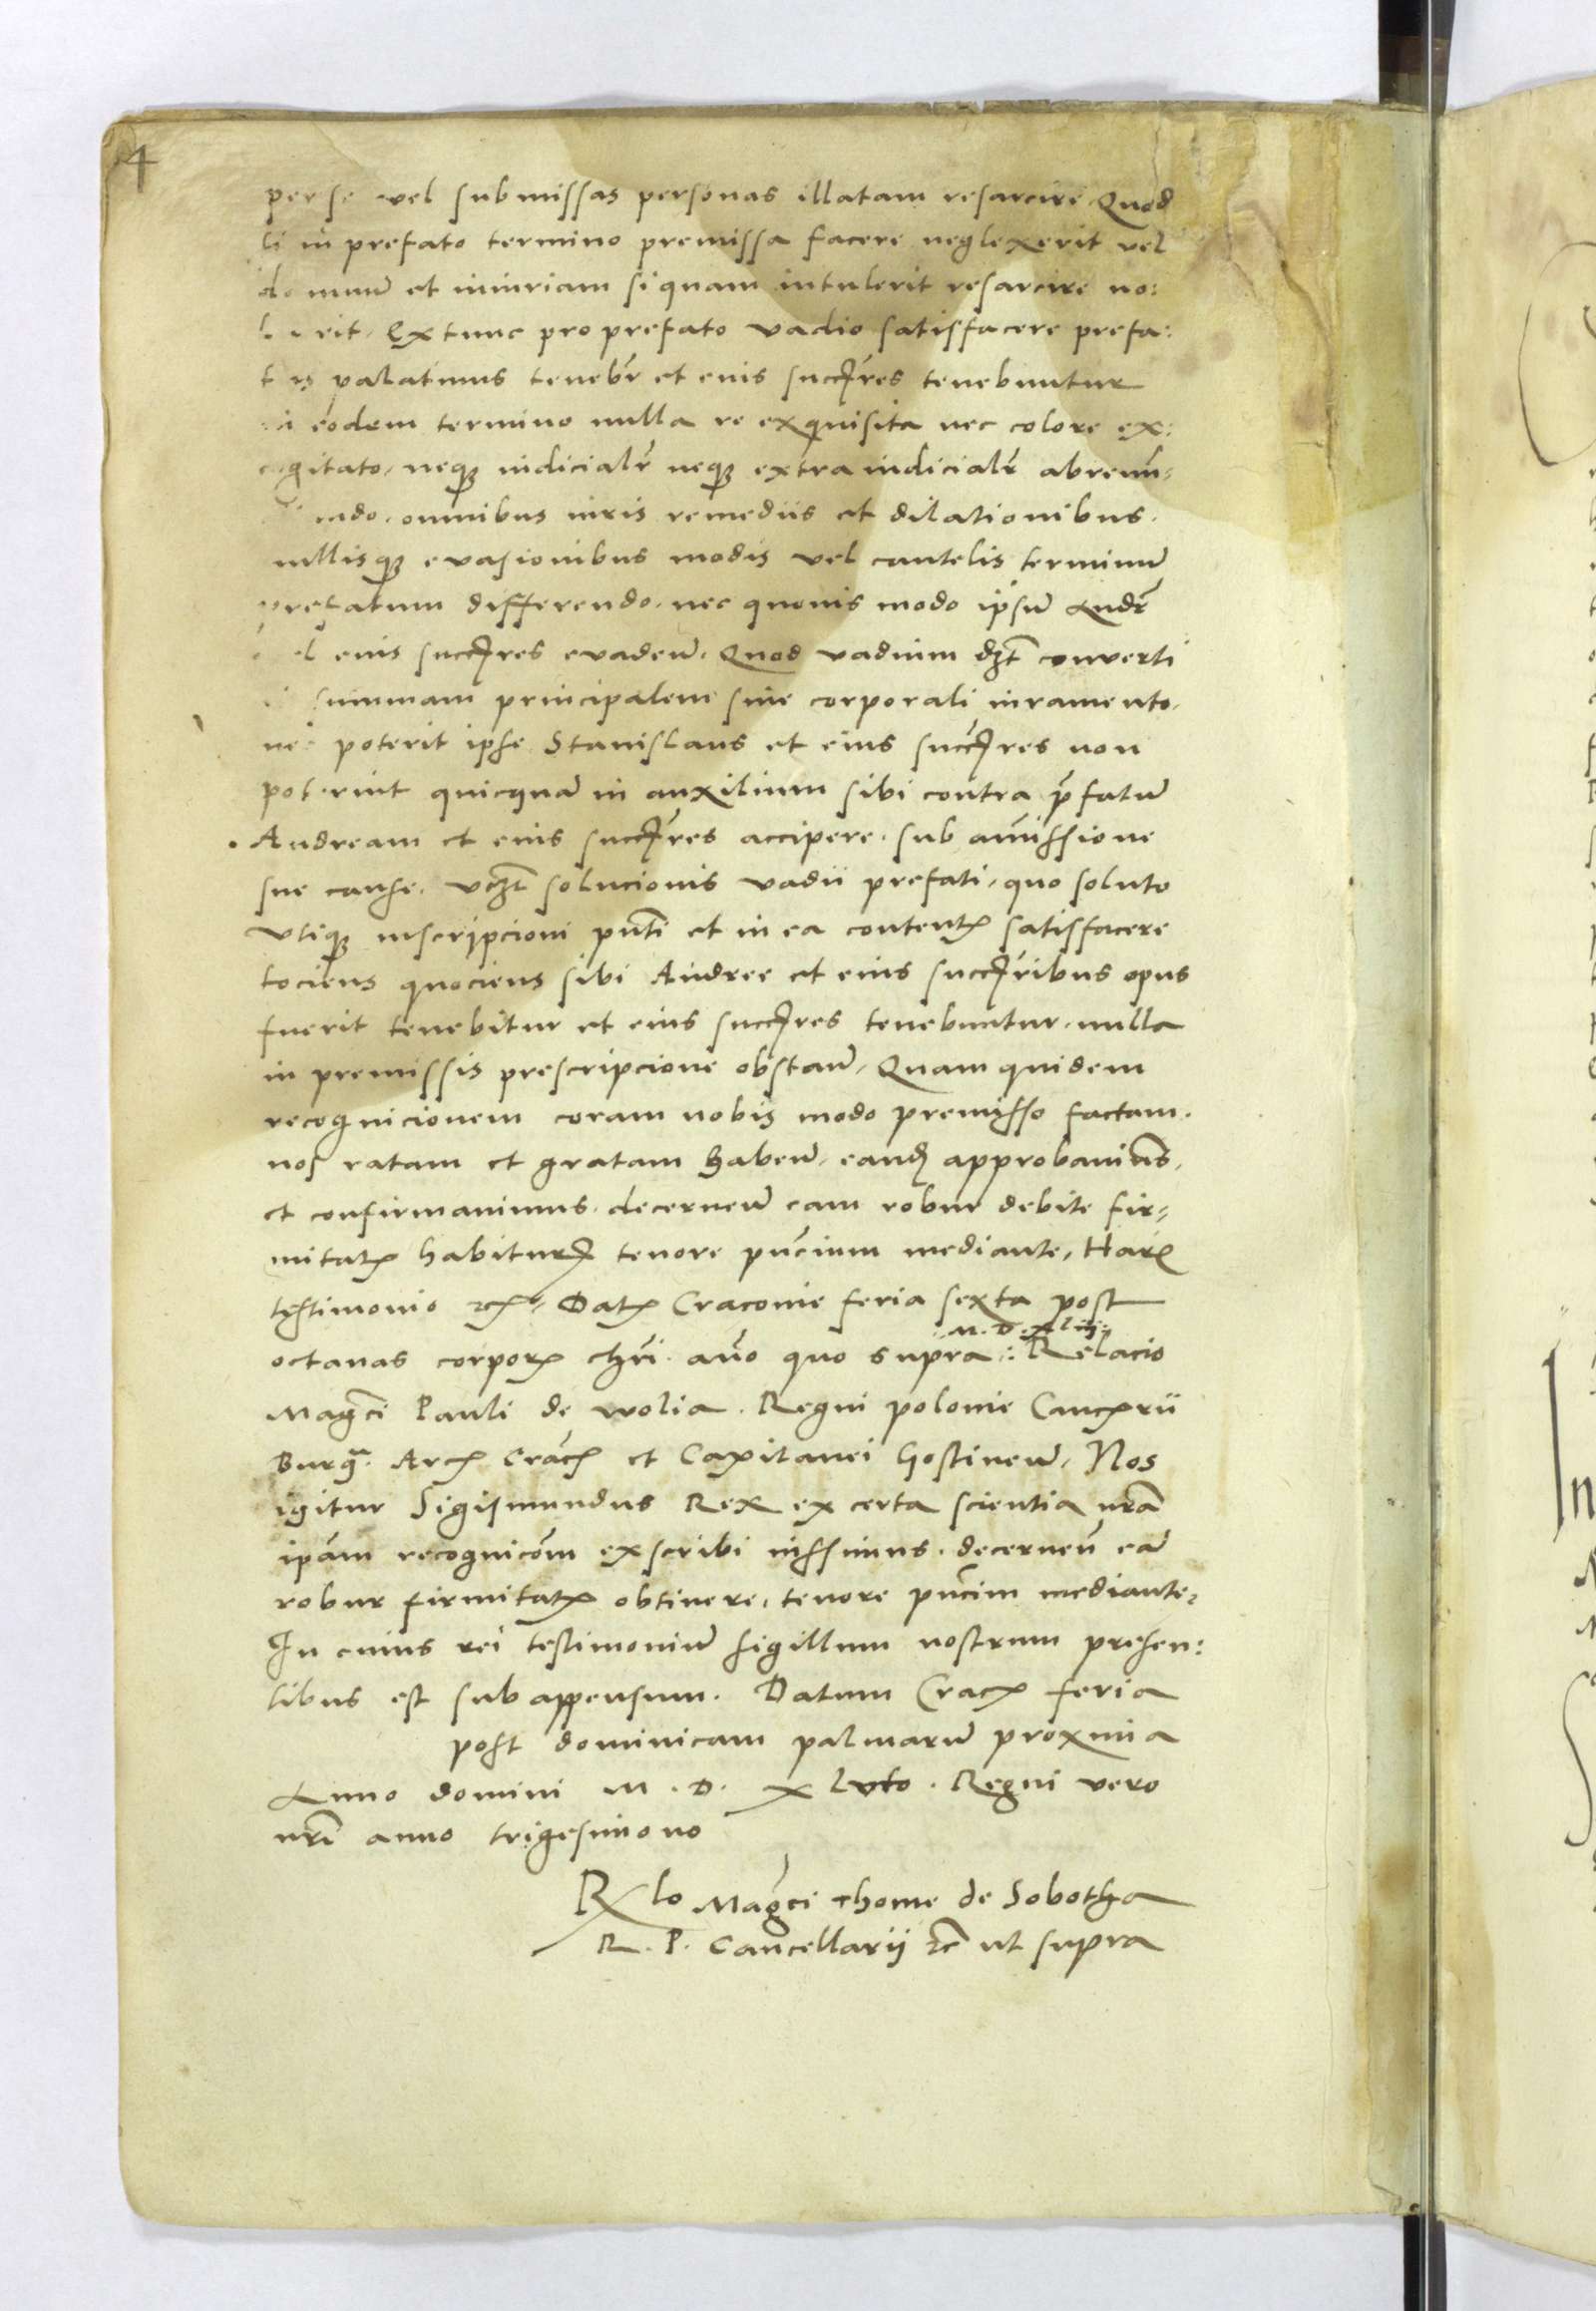 4
per se vel submissas personas illatam resarcire Quod
si in prefato termino premissa facere neglexerit vel
damnū et iniuriam si quam intulerit resarcire no:
luerit. Extunc pro prefato vadio satisfacere prefa:
tus palatinus tenebr̄ et eius succr̄es tenebuntur
in eodem termino nulla re exquisita nec colore ex:
cogitato, neqꝫ iudicialr̄ neqꝫ extra iudicialr̄ abrenū,
ndo omnibus iuris remediis et dilationibus.
nullisqꝫ evasionibus modis vel cautelis terminū
prefatum differendo. nec quovis modo ipsū Andr̄
vel eius succr̄es evadeñ. Quod vadium dꝫt converti
summam principalem sine corporali iuramento.
nec poterit ipse Stanislaus et eius succr̄es non
poterint quicquā in auxilium sibi contra p̄fatū
Andream et eius succr̄es accipere. sub amissione
sue cause. vꝫt solucionis vadii prefati, quo soluto
utiqꝫ inscripcioni pn̄ti et in ea contentꝭ satisfacere
tociens quociens sibi Andree et eius succr̄ibus opus
fuerit tenebitur et eius succr̄es tenebuntur. nulla
in premissis prescripcione obstañ, Quam quidem
recognicionem coram nobis modo premisso factam.
nos ratam et gratam habeñ, eandꝫ approbavims̄,
et confirmavimus. decerneñ eam robur debite fir,
mitatꝭ habiturꝭ tenore pn̄cium mediante, Harꝫ
testimonio rcꝭ, Datꝭ Cracovie feria sexta post
M. D. xliii
octavas corporꝭ chrī. año quo supra: Relacio
Magc̄i Pauli de wolia. Regni polonie Cancꝭrii
Burgᵃ. Arcꝭ Cracꝭ et Capitanei Gostineñ, Nos
igitur Sigismundus Rex ex certa scientia nr̄a
ipām recognicōm exscribi iussimus. decerneñ eā
robur firmitatꝭ obtinere, tenore pn̄cim mediante,
In cuius rei testimoniū sigillum nostrum presen:
tibus est subappensum. Datum Cracꝭ feria
post dominicam palmarū proxima
Anno domini M. D. xlvto. Regni vero
nr̄i anno trigesimo no
Rlo Magc̄i Thome de Sobotha
R. P. Cancellarij rc̄ ut supra